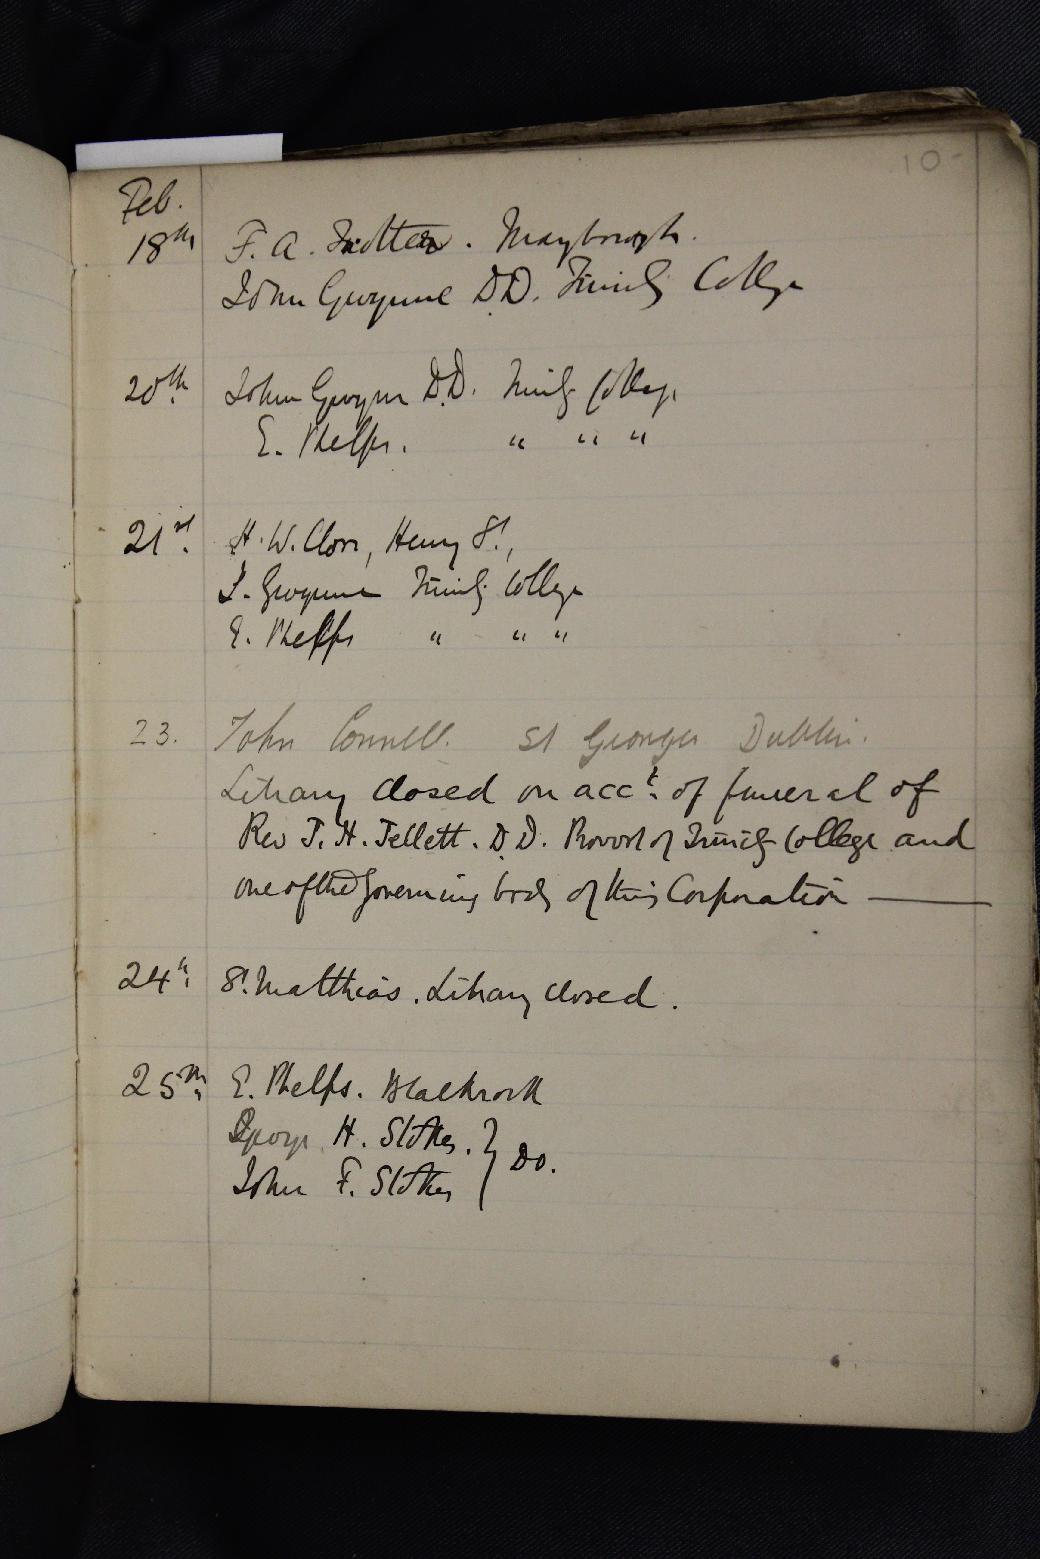 10-
Feb.
18th F. A. Trotter. Maryborough.
John Gwynne D.D. Trinity College
20th. John Gwynn D.D. Trinity College
E. Phelps. " " "
21st. H. W. Clorr, Henry St.,
J. Gwynne Trinity College
E. Phelps " " "
23. John Connell. St Georges Dublin.
Library closed on acct. of funeral of
Rev J. H. Jellett. D.D. Provost of Trinity College and
one of the Governing body of this Corporation —
24th. St. Matthias. Library closed.
25th. E. Phelps. Blackrock
George H. Stokes. } Do.
John F. Stokes